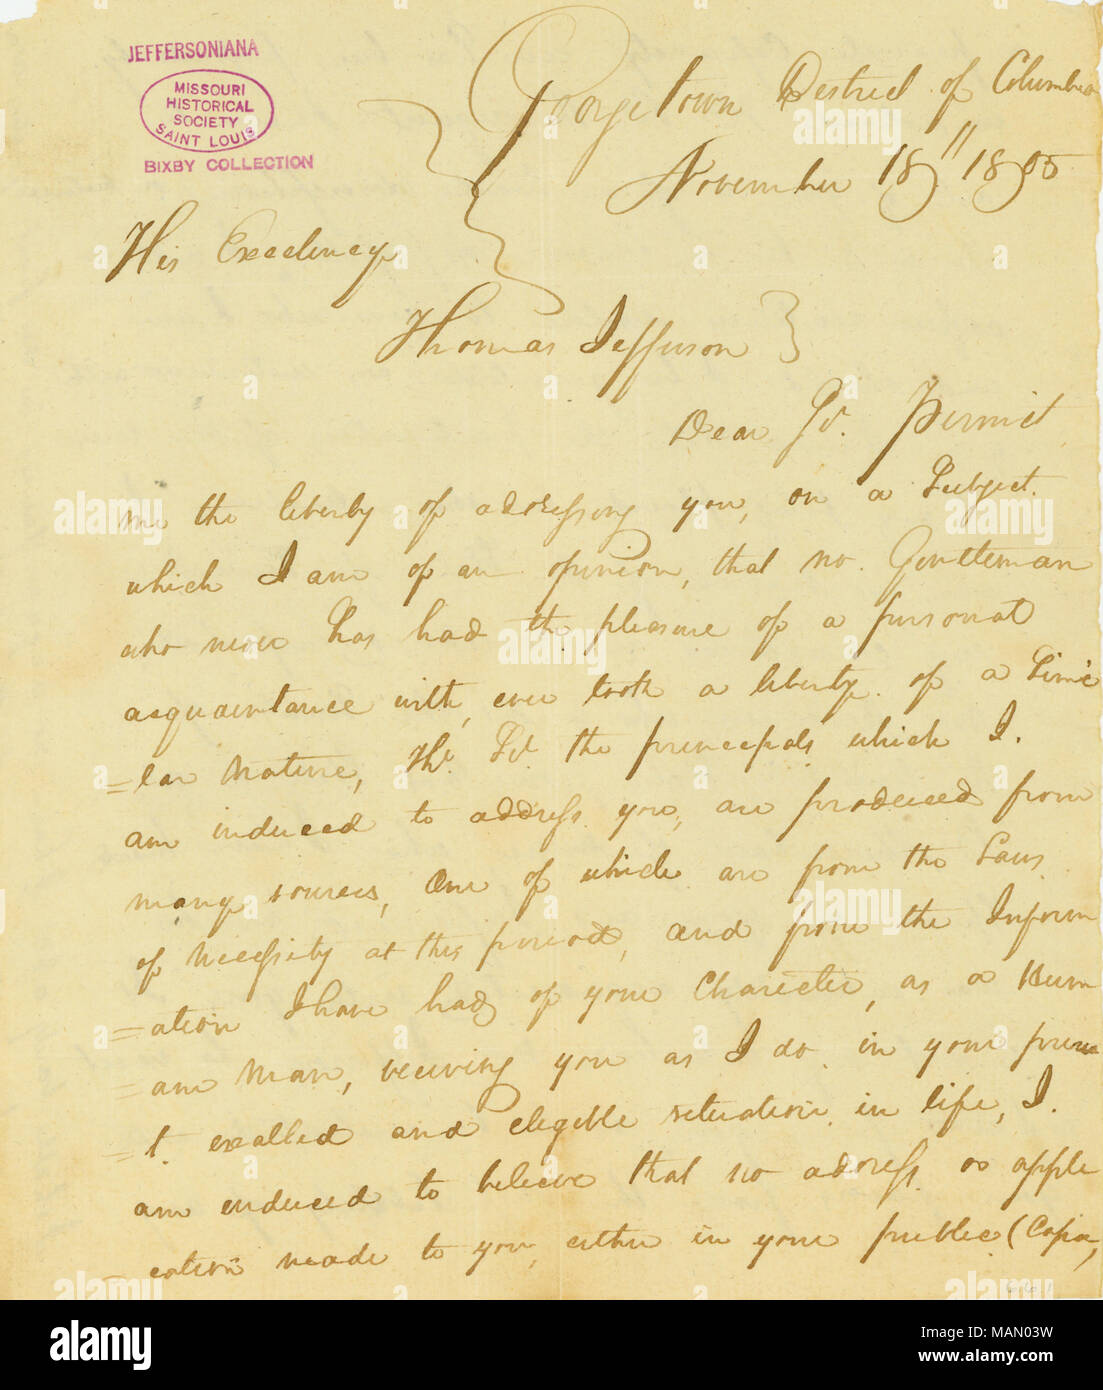 JEFFERSONIANA
MISSOURI
HISTORICAL
SOCIETY
SAINT LOUIS
BIXBY COLLECTION
Georgetown Destrect of Columbia
November 18th 1805
His Excelency
Thomas Jefferson
Dear Sr. Permit
me the liberty of addressing you, on a Subject.
which I am of an opinion, that no Gentleman
who never has had the pleasure of a personal
acquaintance with, ever took a liberty of a Simi
=lar Nature, Thr. Sr. the princepals which I.
am induced to address you, are produced from
many sources, One of which are from the Laws
of Necessity at this period, and from the Inform
=ation I have had of your Charecter, as a Hum
=ane Man, veiwing you as I do in your presen
=t. exalted and elegible situation in life, I.
am enduced to beleive that no address or apple
=cation made to you, either in your publec (Capa,
alamy
Image ID: MAN03W
www.alamy.com